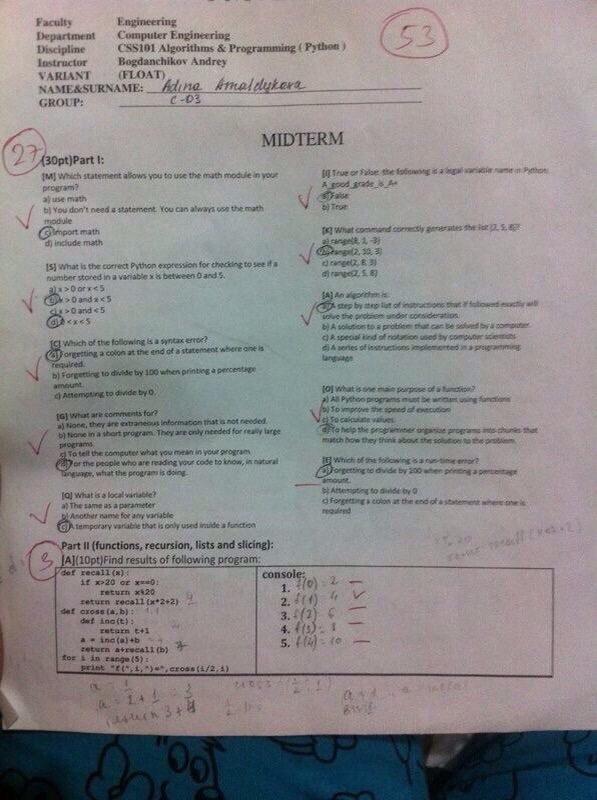 Faculty Engineering
Department Computer Engineering
Discipline CSS101 Algorithms & Programming ( Python )
Instructor Bogdanchikov Andrey
VARIANT (FLOAT)
NAME&SURNAME: Adina Amaldykova
GROUP: C-03
53
MIDTERM
27
(30pt)Part I:
[M] Which statement allows you to use the math module in your
program?
a) use math
b) You don't need a statement. You can always use the math
module
c) import math
d) include math
[S] What is the correct Python expression for checking to see if a
number stored in a variable x is between 0 and 5.
a) x > 0 or x < 5
b) x > 0 and x < 5
c) x > 0 and < 5
d) 0 < x < 5
[C] Which of the following is a syntax error?
a) Forgetting a colon at the end of a statement where one is
required.
b) Forgetting to divide by 100 when printing a percentage
amount.
c) Attempting to divide by 0.
[G] What are comments for?
a) None, they are extraneous information that is not needed.
b) None in a short program. They are only needed for really large
programs.
c) To tell the computer what you mean in your program.
d) For the people who are reading your code to know, in natural
language, what the program is doing.
[Q] What is a local variable?
a) The same as a parameter
b) Another name for any variable
c) A temporary variable that is only used inside a function
[I] True or False: the following is a legal variable name in Python:
A_good_grade_is_A+
a) False
b) True
[K] What command correctly generates the list [2, 5, 8]?
a) range(8, 1, -3)
b) range(2, 10, 3)
c) range(2, 8, 3)
d) range(2, 5, 8)
[A] An algorithm is:
a) A step by step list of instructions that if followed exactly will
solve the problem under consideration.
b) A solution to a problem that can be solved by a computer.
c) A special kind of notation used by computer scientists
d) A series of instructions implemented in a programming
language
[O] What is one main purpose of a function?
a) All Python programs must be written using functions
b) To improve the speed of execution
c) To calculate values.
d) To help the programmer organize programs into chunks that
match how they think about the solution to the problem.
[E] Which of the following is a run-time error?
a) Forgetting to divide by 100 when printing a percentage
amount.
b) Attempting to divide by 0
c) Forgetting a colon at the end of a statement where one is
required
3
Part II (functions, recursion, lists and slicing):
[A](10pt)Find results of following program:
def recall(x):
if x>20 or x==0:
return x%20
return recall(x*2+2) 4
def cross(a,b):
def inc(t):
return t+1
a = inc(a)+b
return a+recall(b)
for i in range(5):
print "f(",i,")=",cross(i/2,i)
console:
1. f(0) = 2
2. f(1) 4
3. f(2) 6
4. f(3) = 8
5. f(4) = 10